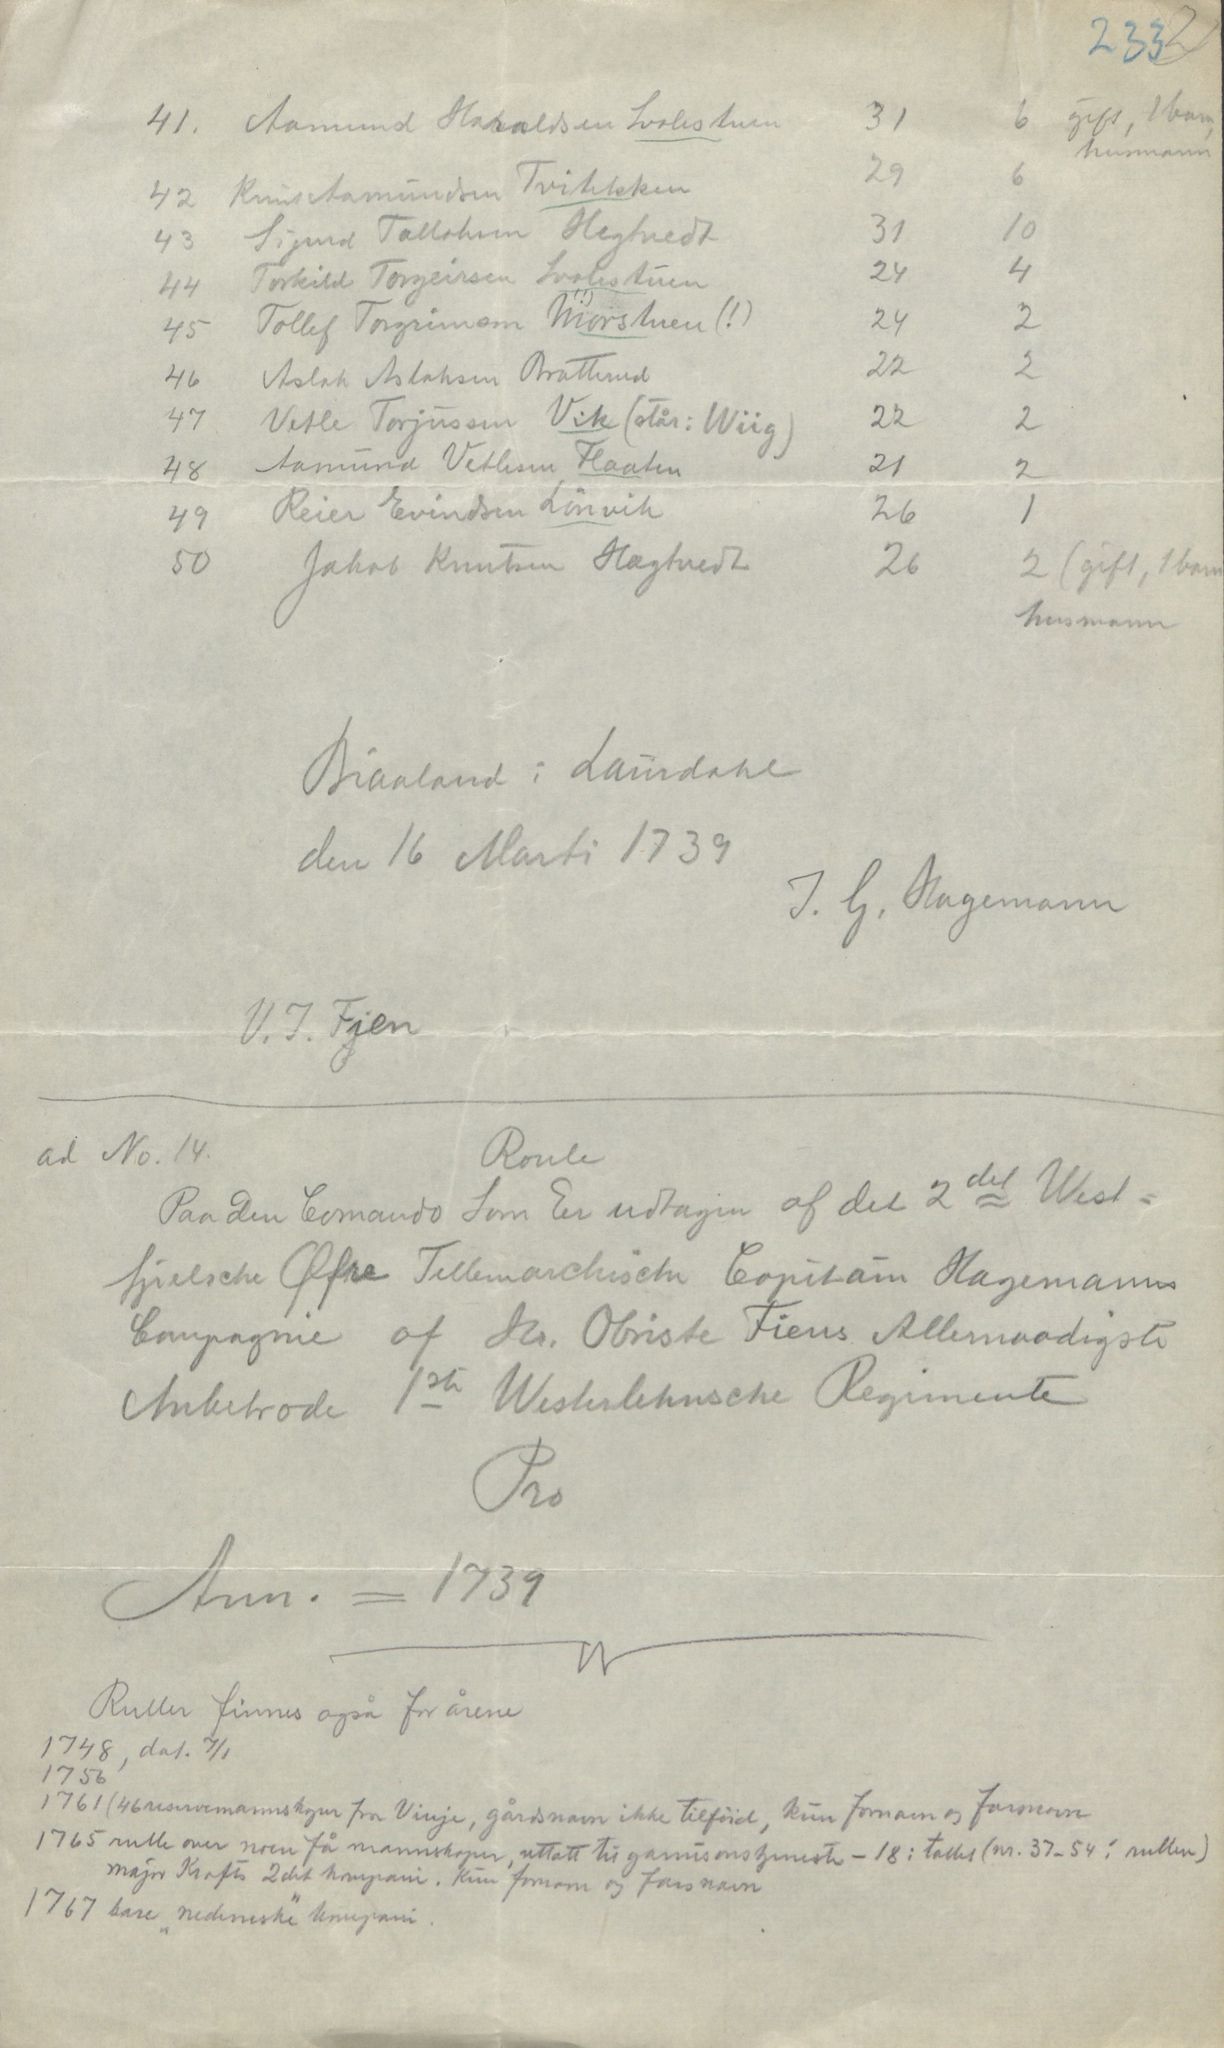 2332
41. Aamund Haraldsen Lvolestuen 31 6 gift, 1 barn,
husmann
42 Knut Aamundsen Tvitekken 29 6
43 Sigurd Tallaksen Hegtvedt 31 10
44 Torkild Torgeirsen Lvolestuen 24 4
45 Tollef Torgrimsen Mörstuen (!) 24 2
46 Aslak Aslaksen Bratterud 22 2
47 Vetle Torjussen Vik (står: Wiig) 22 2
48 Aamund Vetlesen Haaten 21 2
49 Reier Evindsen Lönvik 26 1
50 Jakob Knutsen Hægtvedt 26 2 (gift, 1 barn
husmann
Biaaland i Laurdahl
den 16 Marti 1739
J. G. Hagemann
V. J. Fjen
ad No. 14. Roule
Paa den Comando Som Er udtagen af det 2det West=
fjelsche Øfre Tellemarchische Capitain Hagemanns
Compagnie af Hr. Obriste Fiens Allernaadigste
Anbetrode 1ste Westerlehnsche Regimente
Pro
Ann. = 1739
Ruller finnes også for årene
1748, dat. 7/1
1756
1761 (46 reservemannskaper fra Vinje, gårdsnavn ikke tilföid, kun fornavn og farsnavn
1765 rulle over noen få mannskaper, uttatt til garnisonstjeneste - 18 i tallet (nr. 37-54 i rullen)
major Krafts 2det kompani. Kun fornavn og farsnavn
1767 bare "nedeneske" kompani.